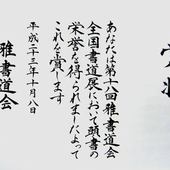 賞状
あなたは第十八回雅書道会
全国書道展において頭書の
栄誉を得られましたよって
これを賞します
平成二十三年十月八日
雅書道会